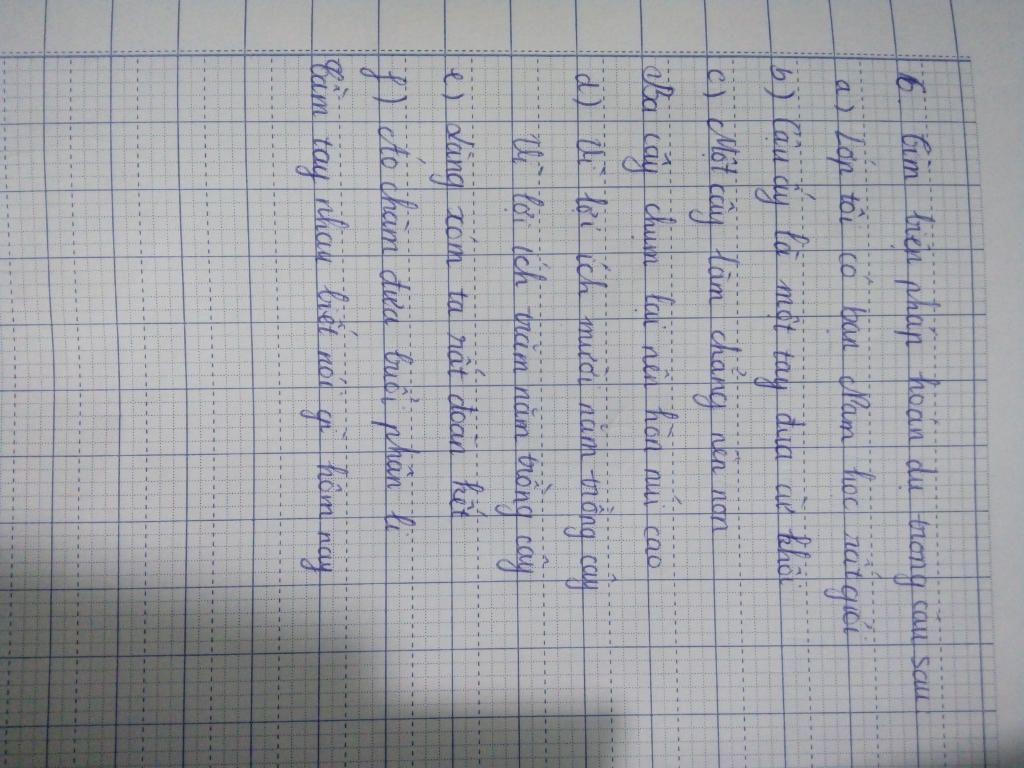 6. Tìm biện pháp hoán dụ trong câu sau
a) Lớp tôi có bạn Nam học rất giỏi
b) Cậu ấy là một tay đua cừ khôi
c) Một cây làm chẳng nên non
Ba cây chụm lại nên hòn núi cao
d) Vì lợi ích mười năm trồng cây
Vì lợi ích trăm năm trồng cây
e) Làng xóm ta rất đoàn kết
f) Áo chàm đưa buổi phân li
Cầm tay nhau biết nói gì hôm nay